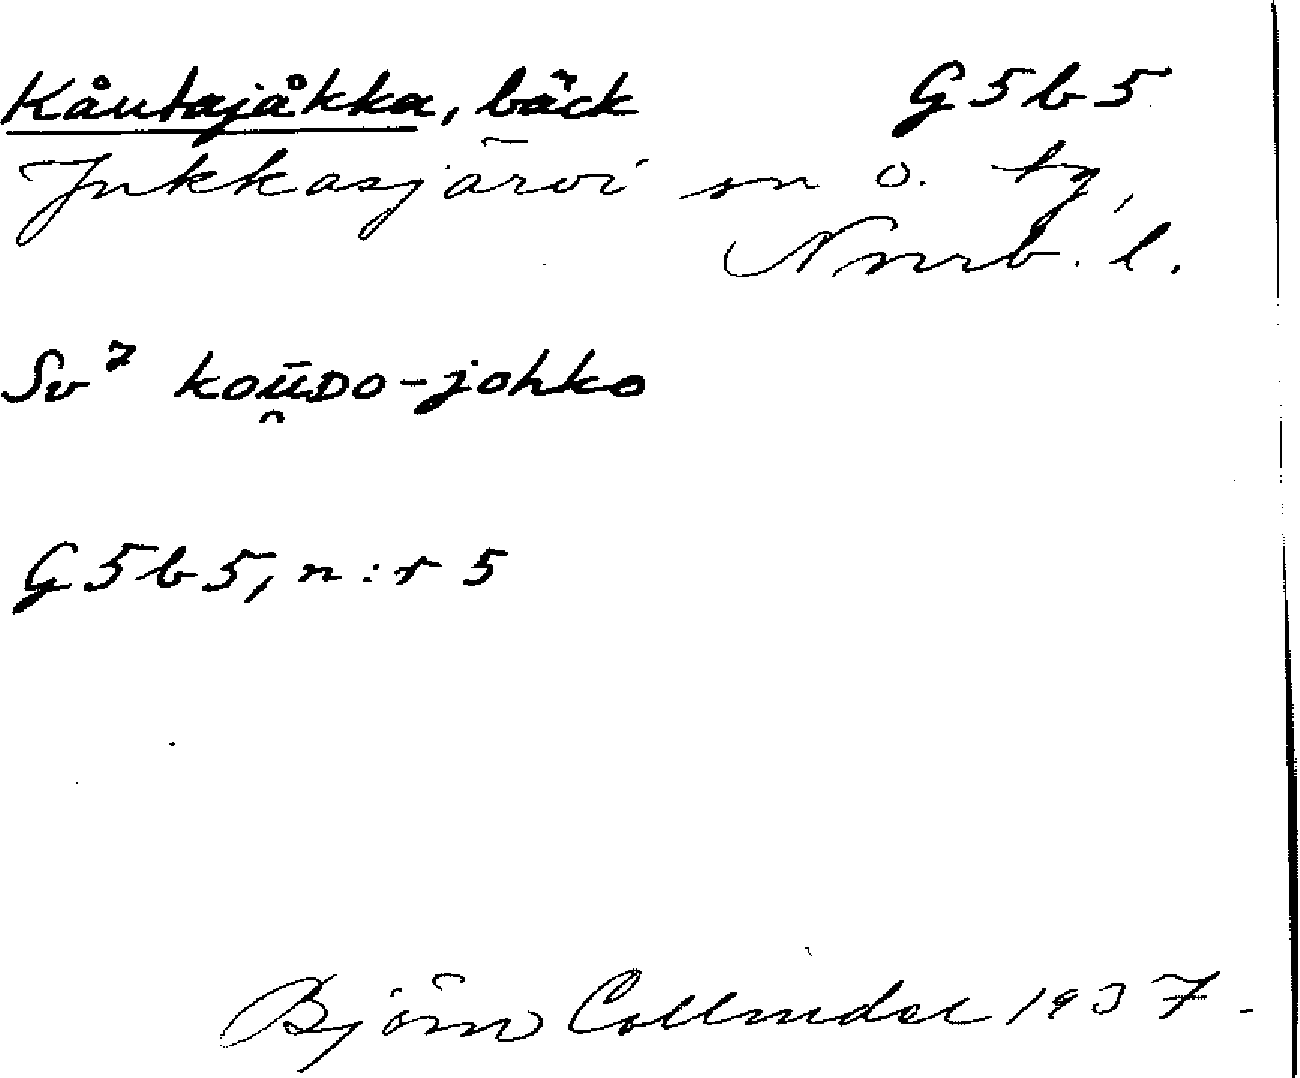 Kåutajåkka, bäck G5b5
Jukkasjärvi sn o. tg,
Norrb. l.
Sv⁷ koū̯ᴅo-johko
G5b5, n:r 5
Björn Collinder 1937.